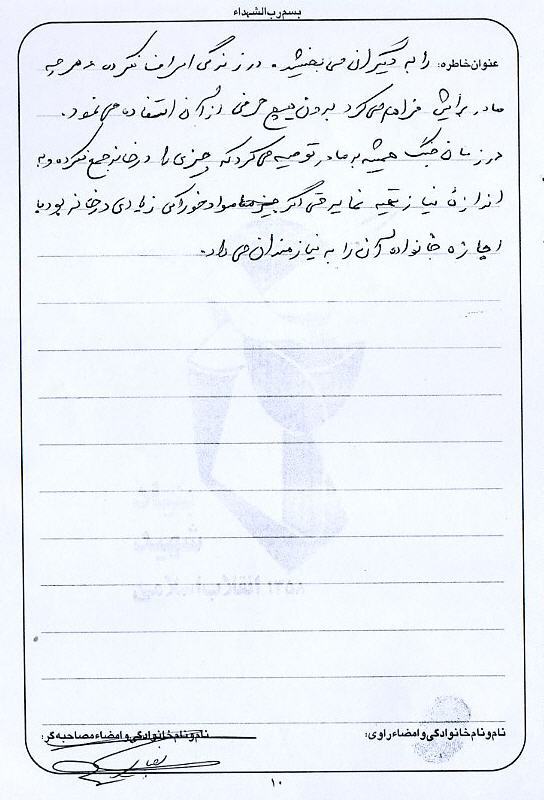 بسم رب الشهداء
عنوان خاطره: را به دیگران می بخشید. در زندگی اسراف نکرده و هر چه
مادر برایش فراهم می کرد بدون هیچ حرفی از آن استفاده می نمود.
در زمان جنگ همیشه به مادر توصیه می کرد که چیزی را در خانه جمع نکرده و به
اندازه نیاز تهیه نماید حتی اگر مواد خوراکی زیادی در خانه بود با
اجازه خانواده آن را به نیازمندان می داد.
نام و نام خانوادگی و امضاء راوی:
نام و نام خانوادگی و امضاء مصاحبه گر:
۱۰